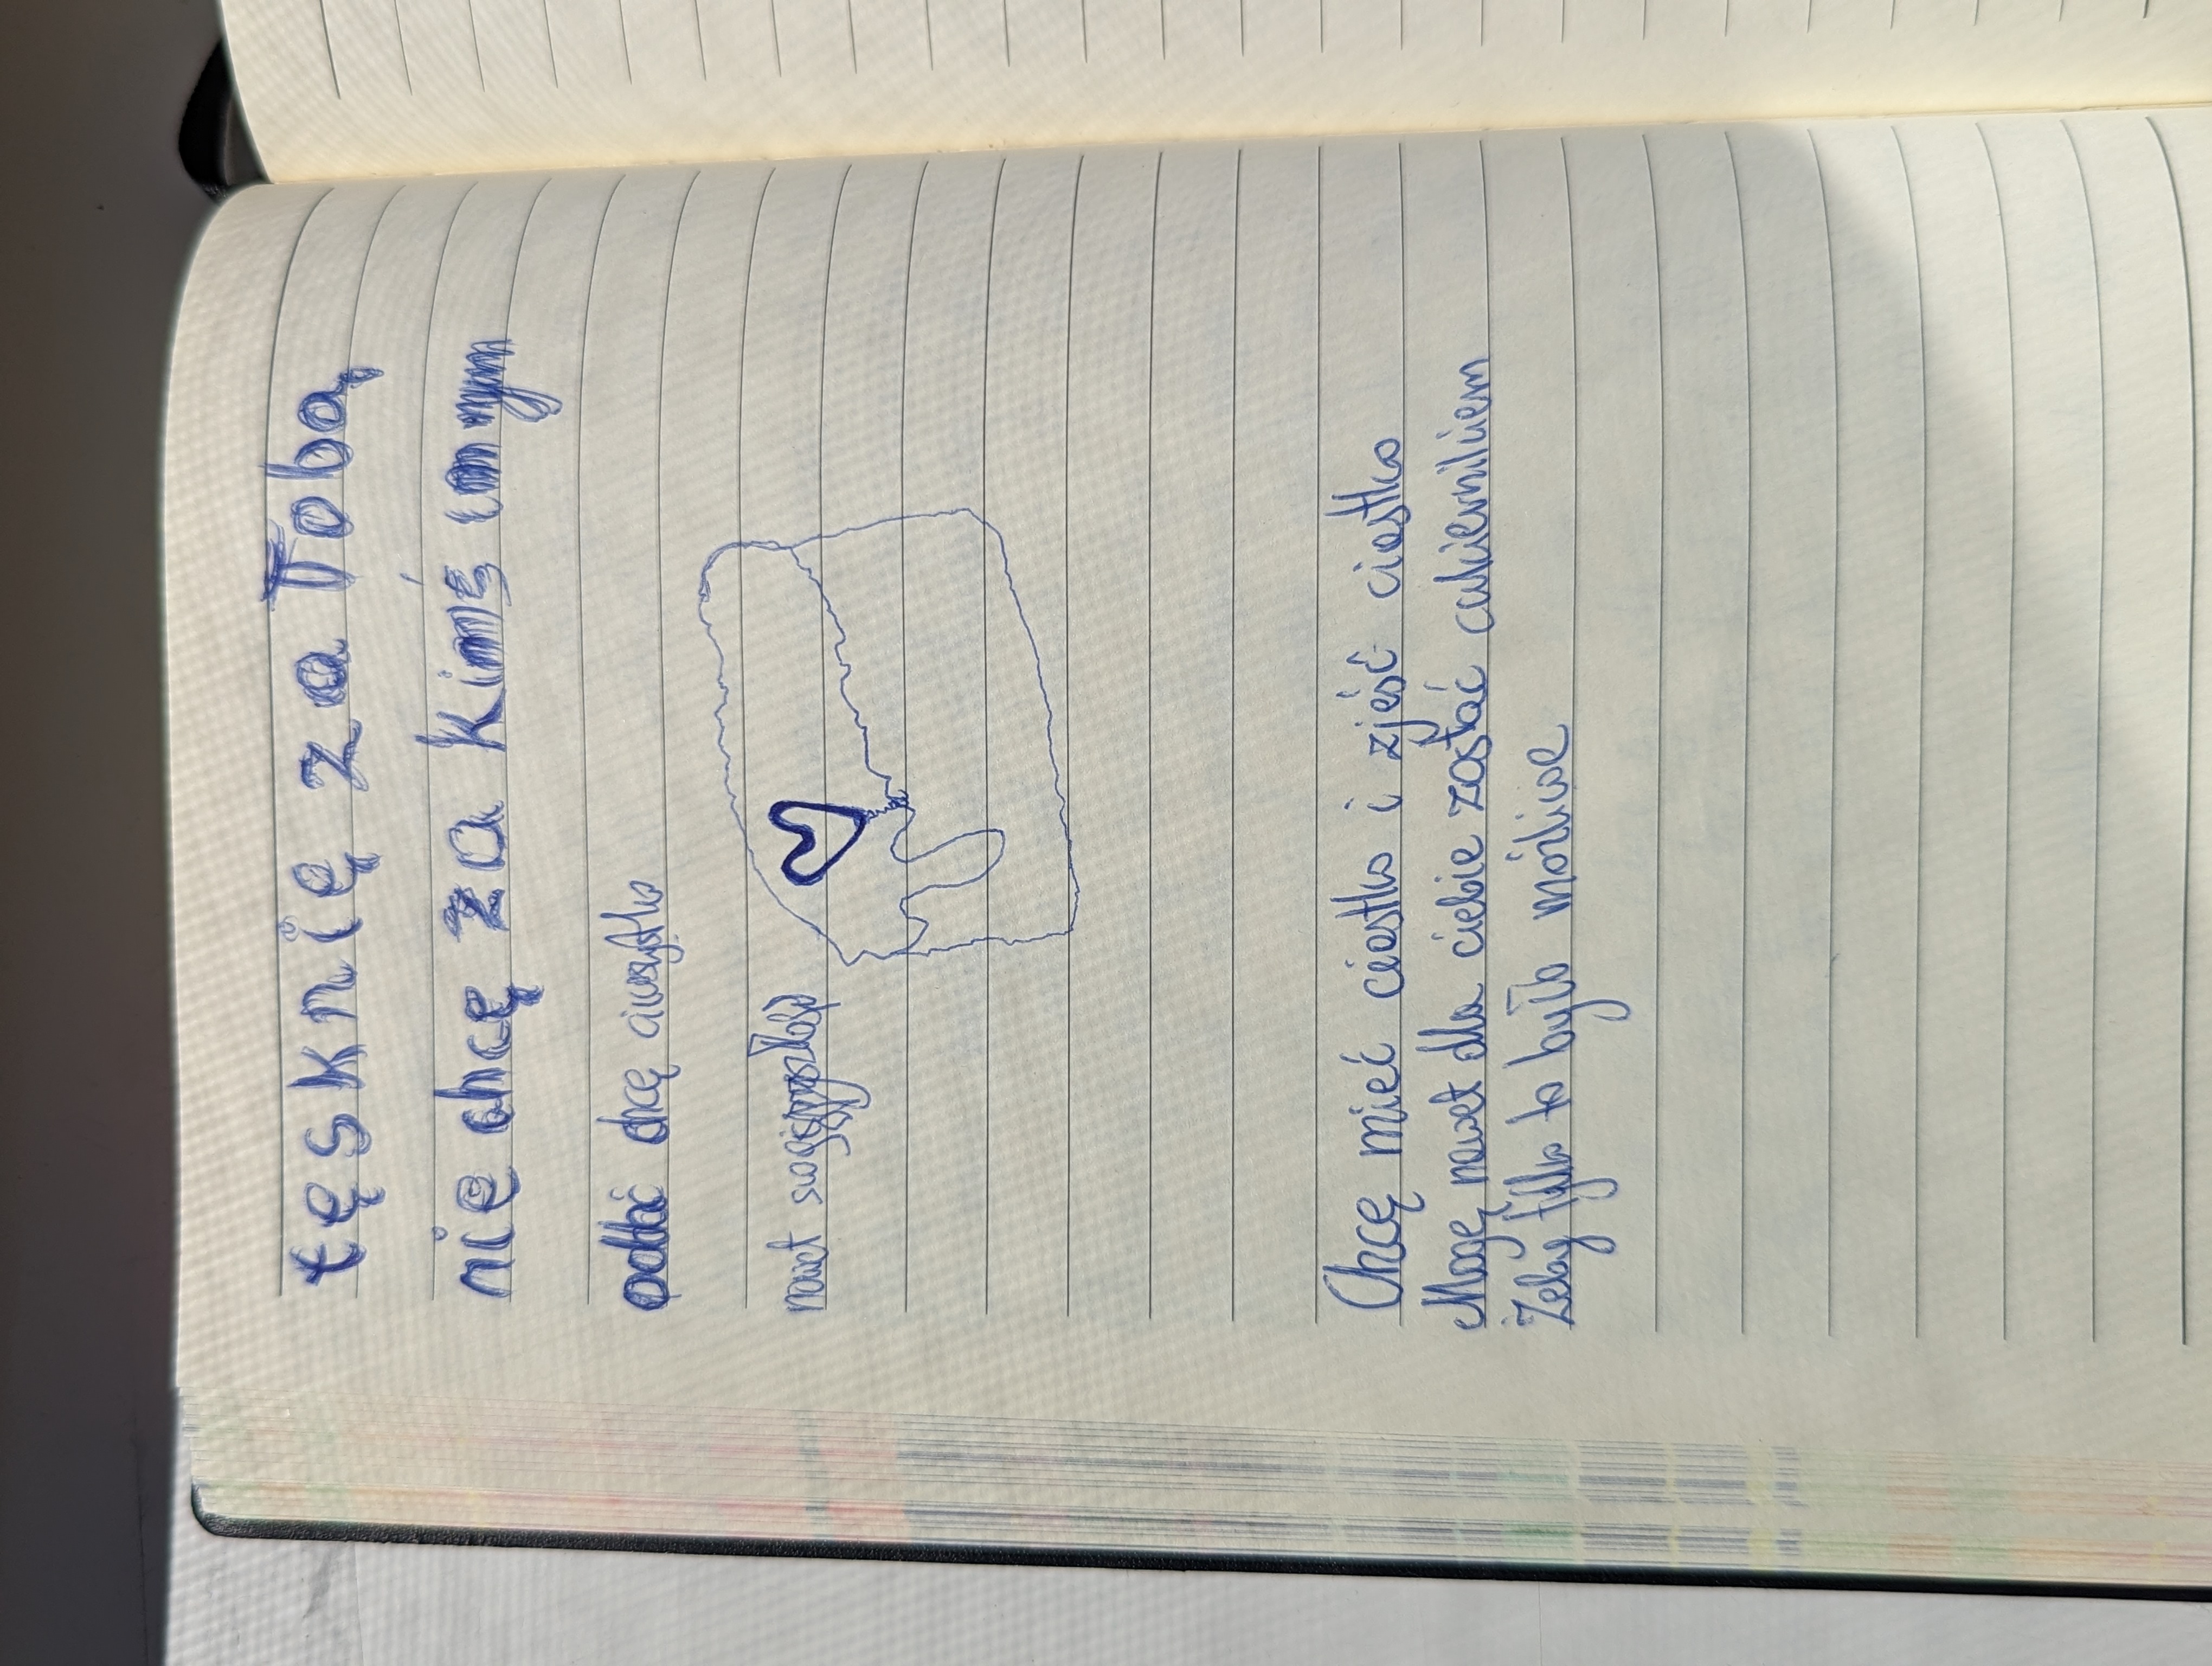 tęsknię za Tobą,
nie chcę za kimś innym
oddać chcę ci wszystko
nawet swój
Chcę mieć ciastko i zjeść ciastko
Mogę nawet dla ciebie zostać cukiernikiem
Żeby tylko to było możliwe